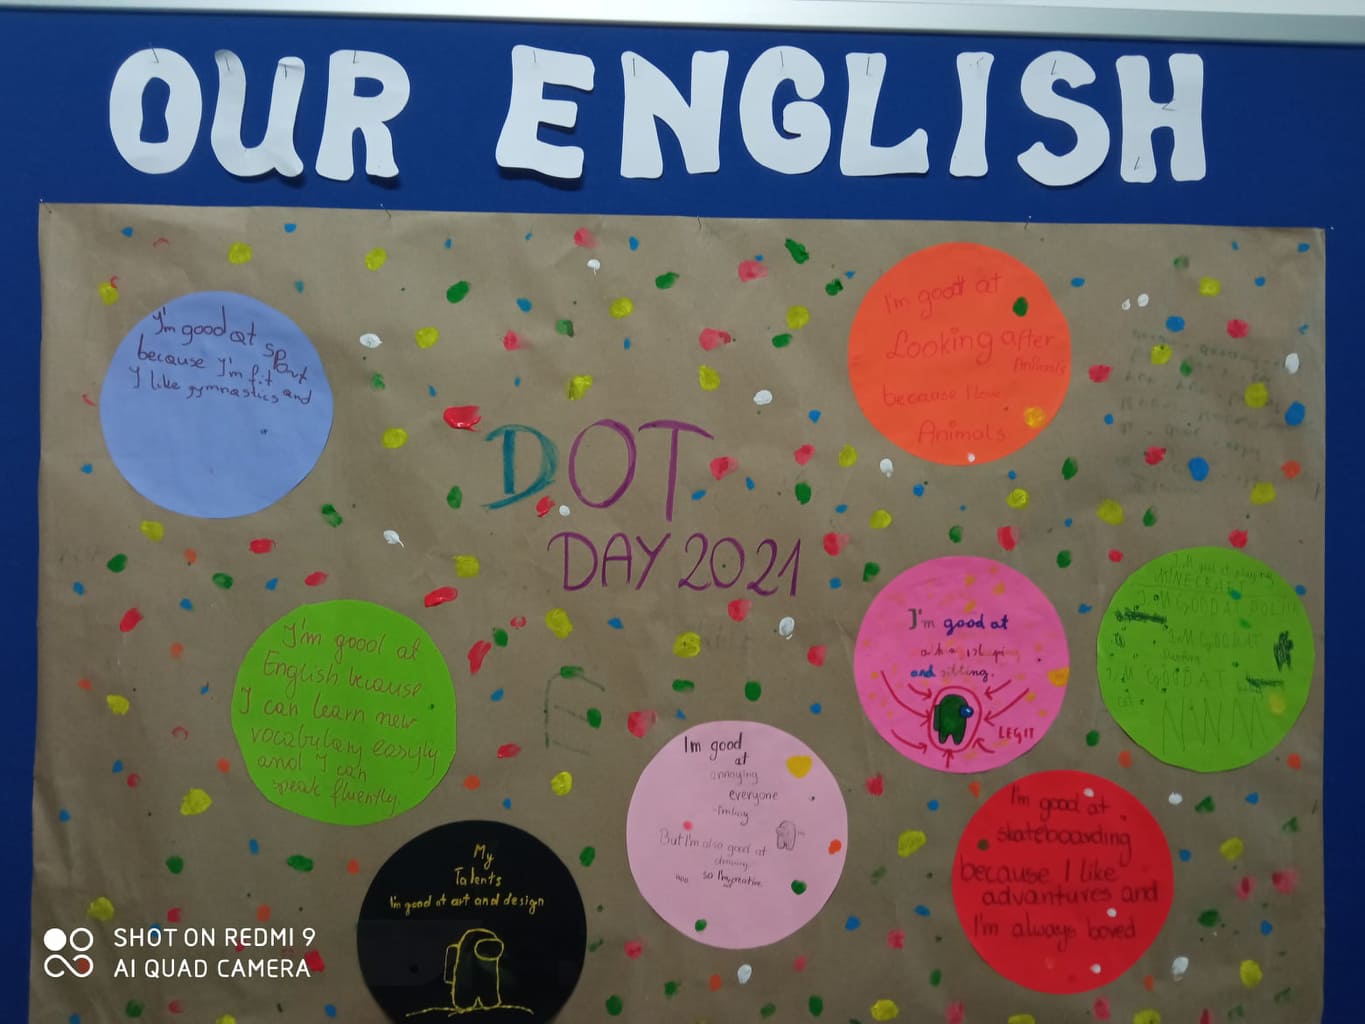 OUR ENGLISH
DOT
DAY 2021
I'm good at sport
because I'm fit and
I like gymnastics
I'm good at
Looking after
Animals
because I love
Animals
I'm good at
English because
I can learn new
vocabulary easyly
and I can
speak fluently.
I'm good at
and
LEGIT
MINECRAFT
I'M GOOD AT
I'M GOOD AT
I'M GOOD AT
Im good
at
annoying
everyone
But I'm also good at
so I'm creative
My
Talents
I'm good at art and design
I'm good at
skateboarding
because I like
advantures and
I'm always bored
SHOT ON REDMI 9
AI QUAD CAMERA